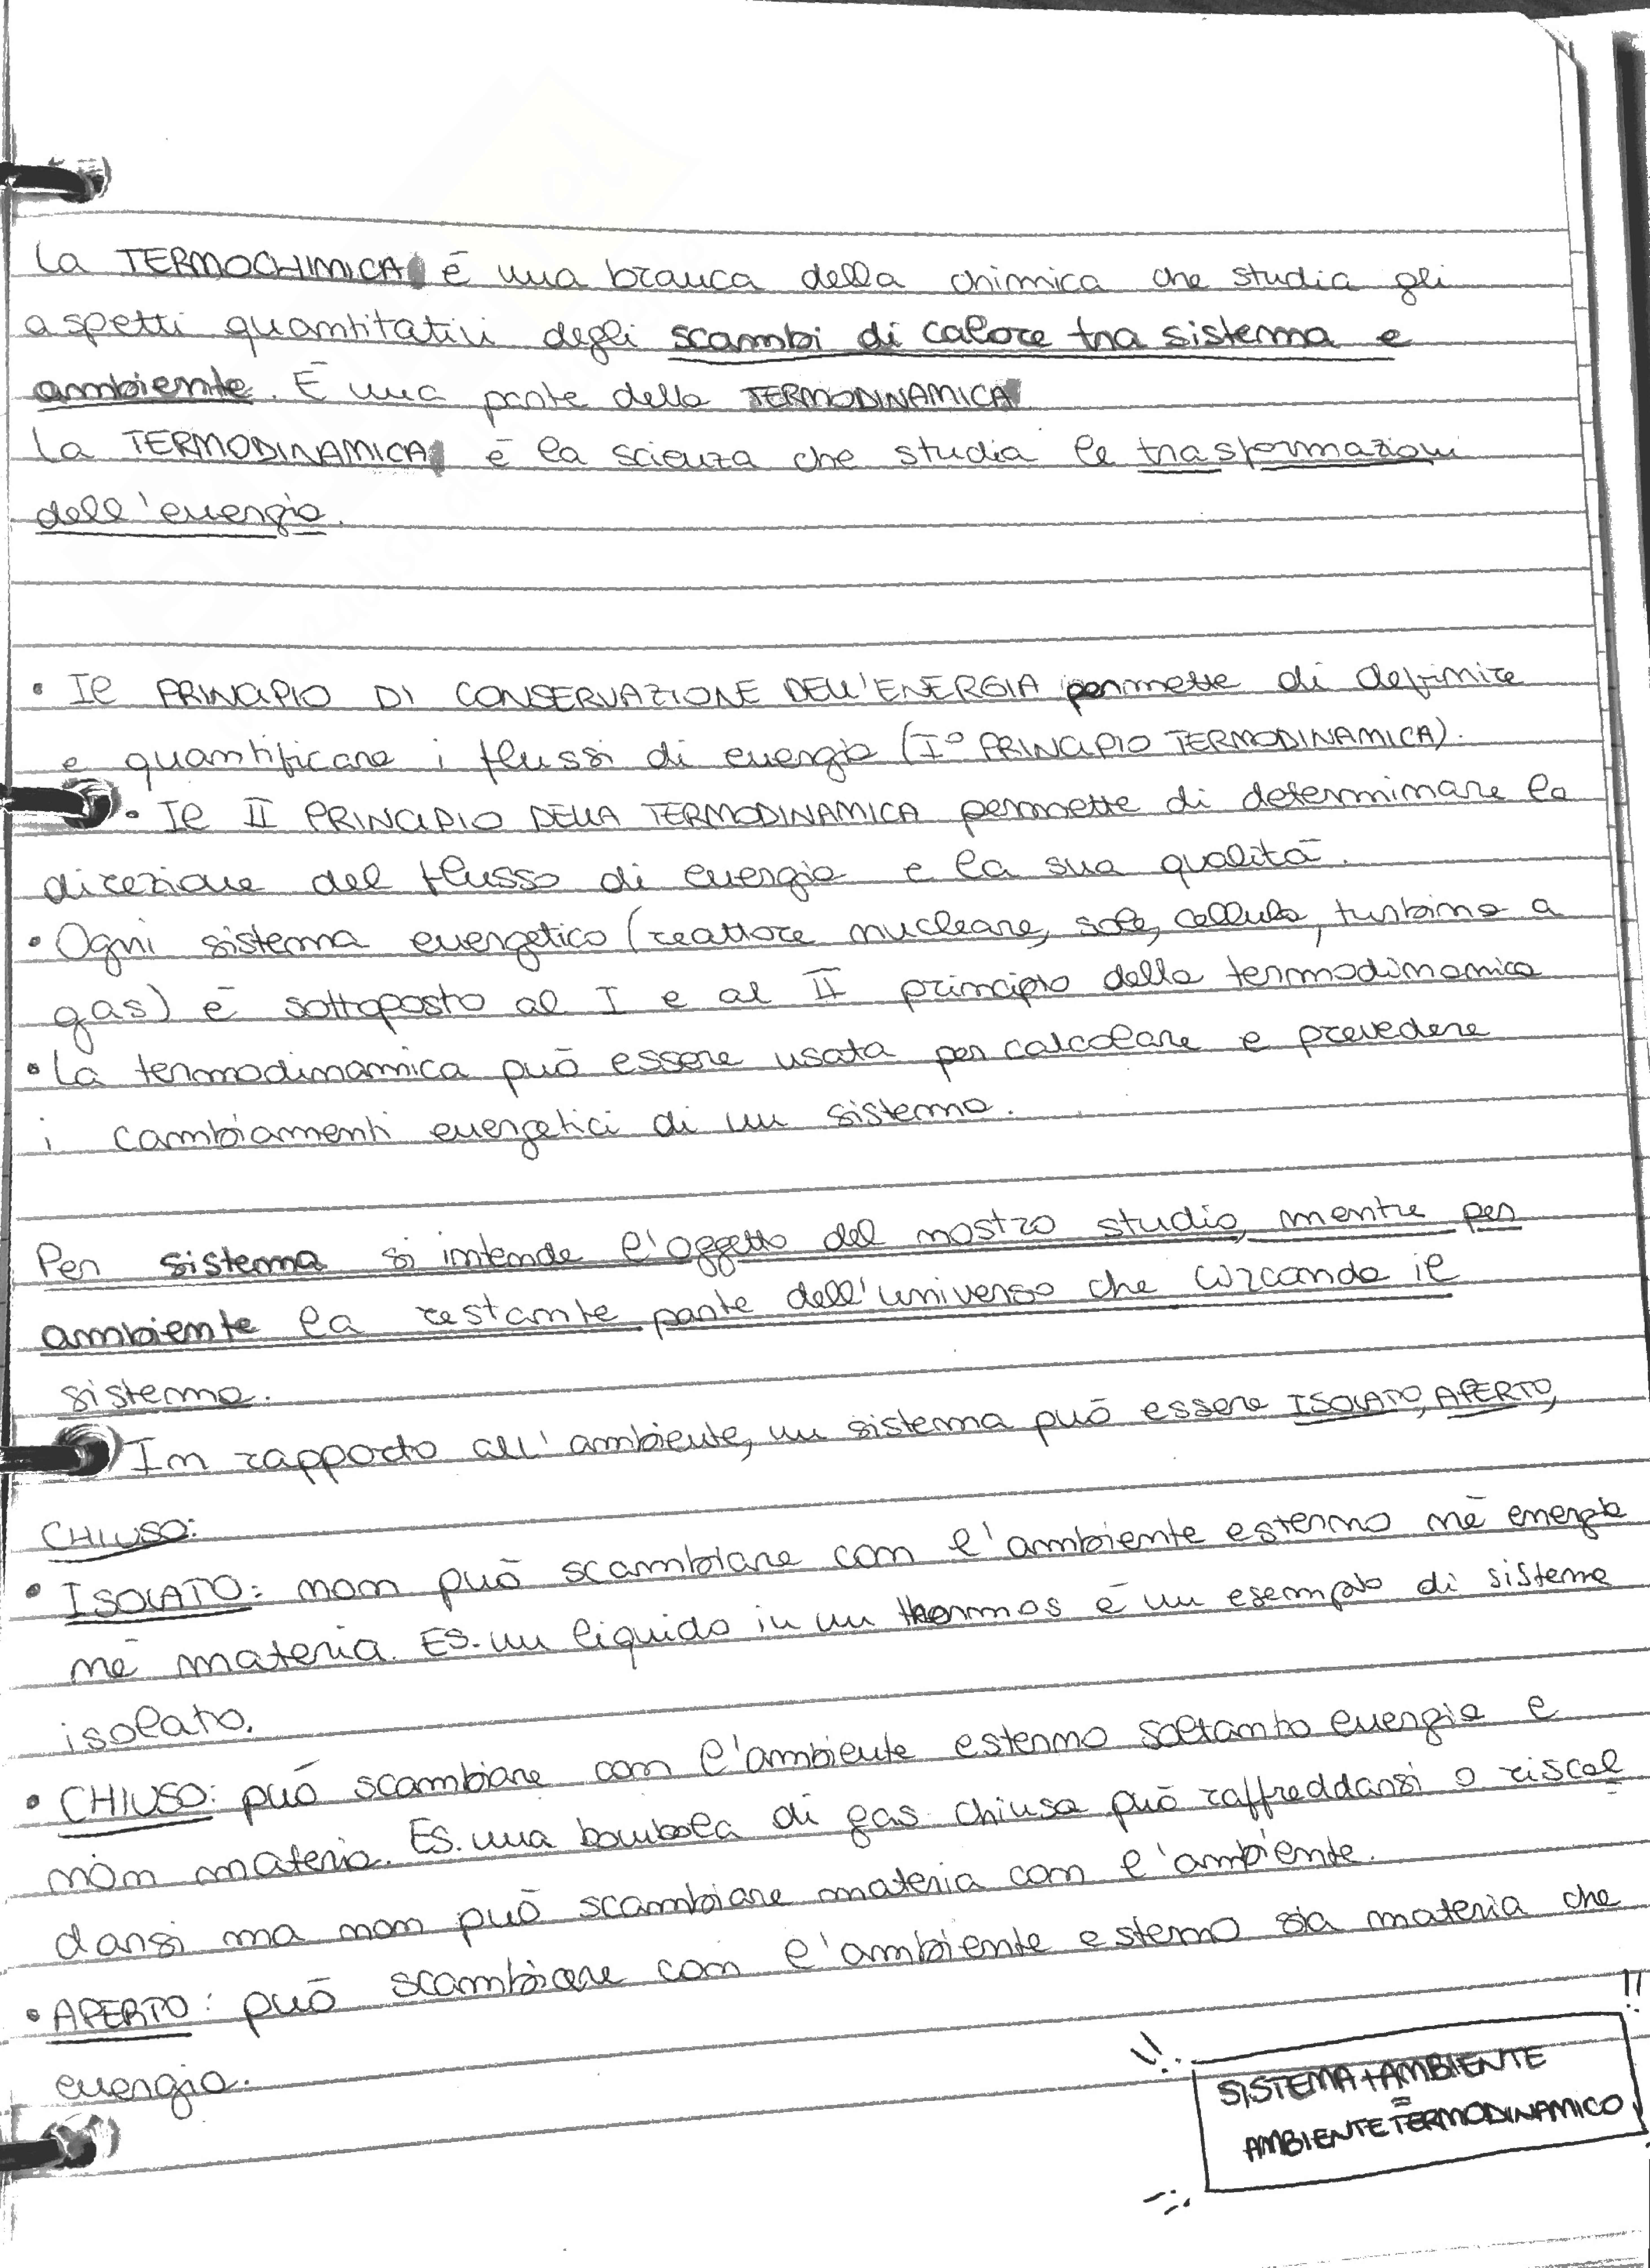 La TERMOCHIMICA è una branca della chimica che studia gli
aspetti quantitativi degli scambi di calore tra sistema e
ambiente. È una parte della TERMODINAMICA
La TERMODINAMICA è la scienza che studia le trasformazioni
dell'energia.
• Il PRINCIPIO DI CONSERVAZIONE DELL'ENERGIA permette di definire
e quantificare i flussi di energia (I° PRINCIPIO TERMODINAMICA).
• Il II PRINCIPIO DELLA TERMODINAMICA permette di determinare la
direzione del flusso di energia e la sua qualità.
• Ogni sistema energetico (reattore nucleare, sole, cellula, turbina a
gas) è sottoposto al I e al II principio della termodinamica
• La termodinamica può essere usata per calcolare e prevedere
i cambiamenti energetici di un sistema.
Per sistema si intende l'oggetto del nostro studio, mentre per
ambiente la restante parte dell'universo che circonda il
sistema.
In rapporto all'ambiente, un sistema può essere ISOLATO, APERTO,
CHIUSO:
• ISOLATO: non può scambiare con l'ambiente esterno né energia
né materia. ES. un liquido in un thermos è un esempio di sistema
isolato.
• CHIUSO: può scambiare con l'ambiente esterno soltanto energia e
non materia. ES. una bombola di gas chiusa può raffreddarsi o riscal
darsi ma non può scambiare materia con l'ambiente.
• APERTO: può scambiare con l'ambiente esterno sia materia che
energia.
!! !!
SISTEMA+AMBIENTE
=
AMBIENTE TERMODINAMICO